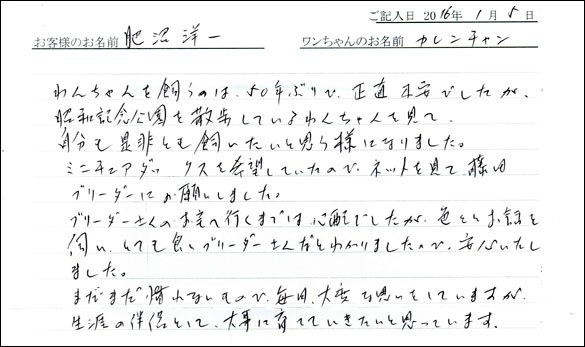 ご記入日 2016年 1月 5日
お客様のお名前 肥沼洋一 ワンちゃんのお名前 カレンチャン
わんちゃんを飼うのは、50年ぶりで、正直不安でしたが、
昭和記念公園を散歩しているわんちゃんを見て、
自分も是非とも飼いたいと思う様になりました。
ミニチュアダックスを希望していたので、ネットを見て、藤田
ブリーダーにお願いしました。
ブリーダーさんのお宅へ行くまでは心配でしたが、色々とお話を
伺い、とても良いブリーダーさんだとわかりましたので、安心いたし
ました。
まだまだ慣れないもので、毎日、大変な思いをしていますが、
生涯の伴侶として、大事に育てていきたいと思っています。